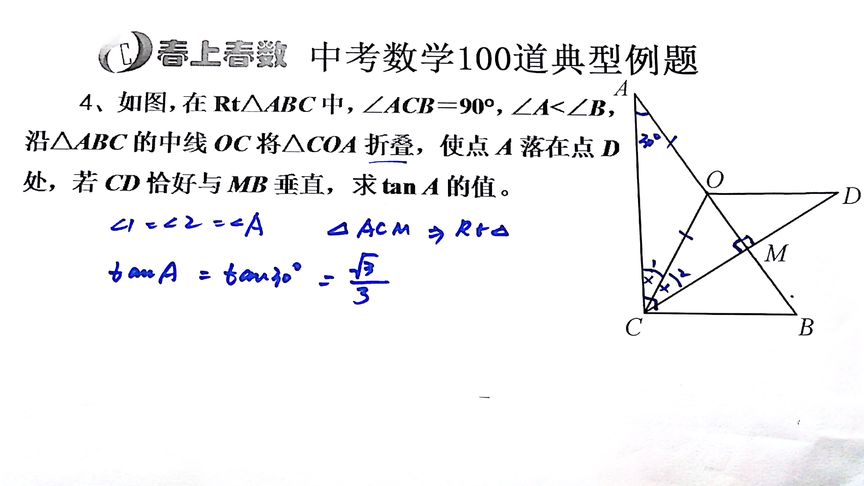 春上春数 中考数学100道典型例题
4、如图,在 Rt△ABC 中,∠ACB=90°,∠A<∠B,
沿△ABC 的中线 OC 将△COA 折叠,使点 A 落在点 D
处,若 CD 恰好与 MB 垂直,求 tan A 的值。
∠1=∠2=∠A △ACM ⇒ Rt△
tanA = tan30° = √3/3
A
30°
O
D
M
1
x
x
2
C
B